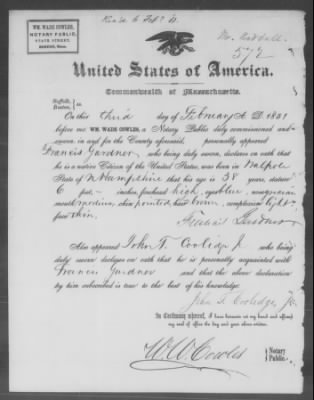 WM. WADE COWLES,
NOTARY PUBLIC,
STATE STREET,
BOSTON, Mass.
572
United States of America.
Commonwealth of Massachusetts.
Suffolk,
Boston, ss.
On this third day of February A. D. 1881
before me WM. WADE COWLES, a Notary Public duly commissioned and
sworn, in and for the County aforesaid, personally appeared
Francis Gardner who being duly sworn, declares on oath that
he is a native Citizen of the United States, was born in Walpole
State of N Hampshire that his age is 38 years, stature
6 feet, – inches, forehead high, eyes blue,
mouth medium, chin pointed, hair brown, complexion light,
face thin.
Francis Gardner
Also appeared John T. Coolidge Jr. who being
duly sworn declares on oath that he is personally acquainted with
Francis Gardner and that the above declaration
by him subscribed is true to the best of his knowledge.
John T. Coolidge Jr.
In Testimony whereof, I have hereunto set my hand and affixed
my seal of office the day and year above written.
W. W. Cowles
Notary
Public.